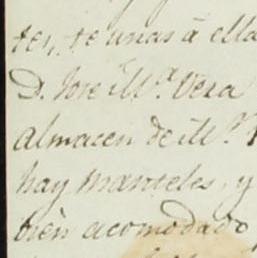 ter, te unas à ella
D. Jose M.ª Vera
almacen de M.
hay manteles, y
bien acomodado